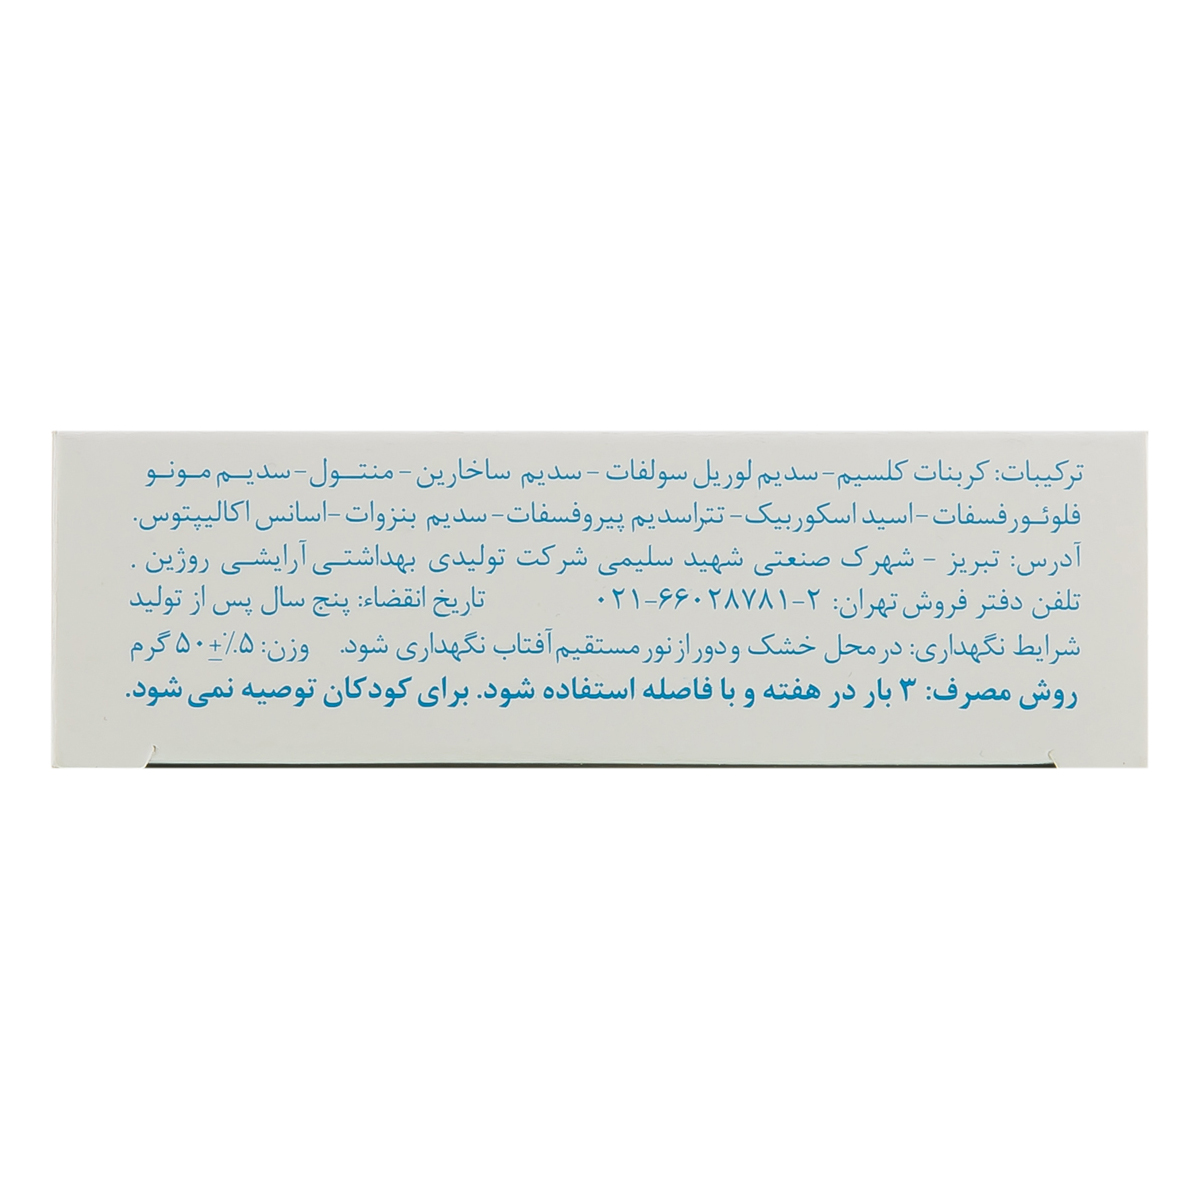 ترکیبات: کربنات کلسیم-سدیم لوریل سولفات - سدیم ساخارین - منتول-سدیم مونو
فلوئورفسفات-اسید اسکوربیک- تتراسدیم پیروفسفات-سدیم بنزوات-اسانس اکالیپتوس.
آدرس: تبریز - شهرک صنعتی شهید سلیمی شرکت تولیدی بهداشتی آرایشی روژین .
تلفن دفتر فروش تهران: ۲-۶۶۰۲۸۷۸۱-۰۲۱ تاریخ انقضاء: پنج سال پس از تولید
شرایط نگهداری: در محل خشک و دور از نور مستقیم آفتاب نگهداری شود. وزن: ۵٪±۵۰ گرم
روش مصرف: ۳ بار در هفته و با فاصله استفاده شود. برای کودکان توصیه نمی شود.